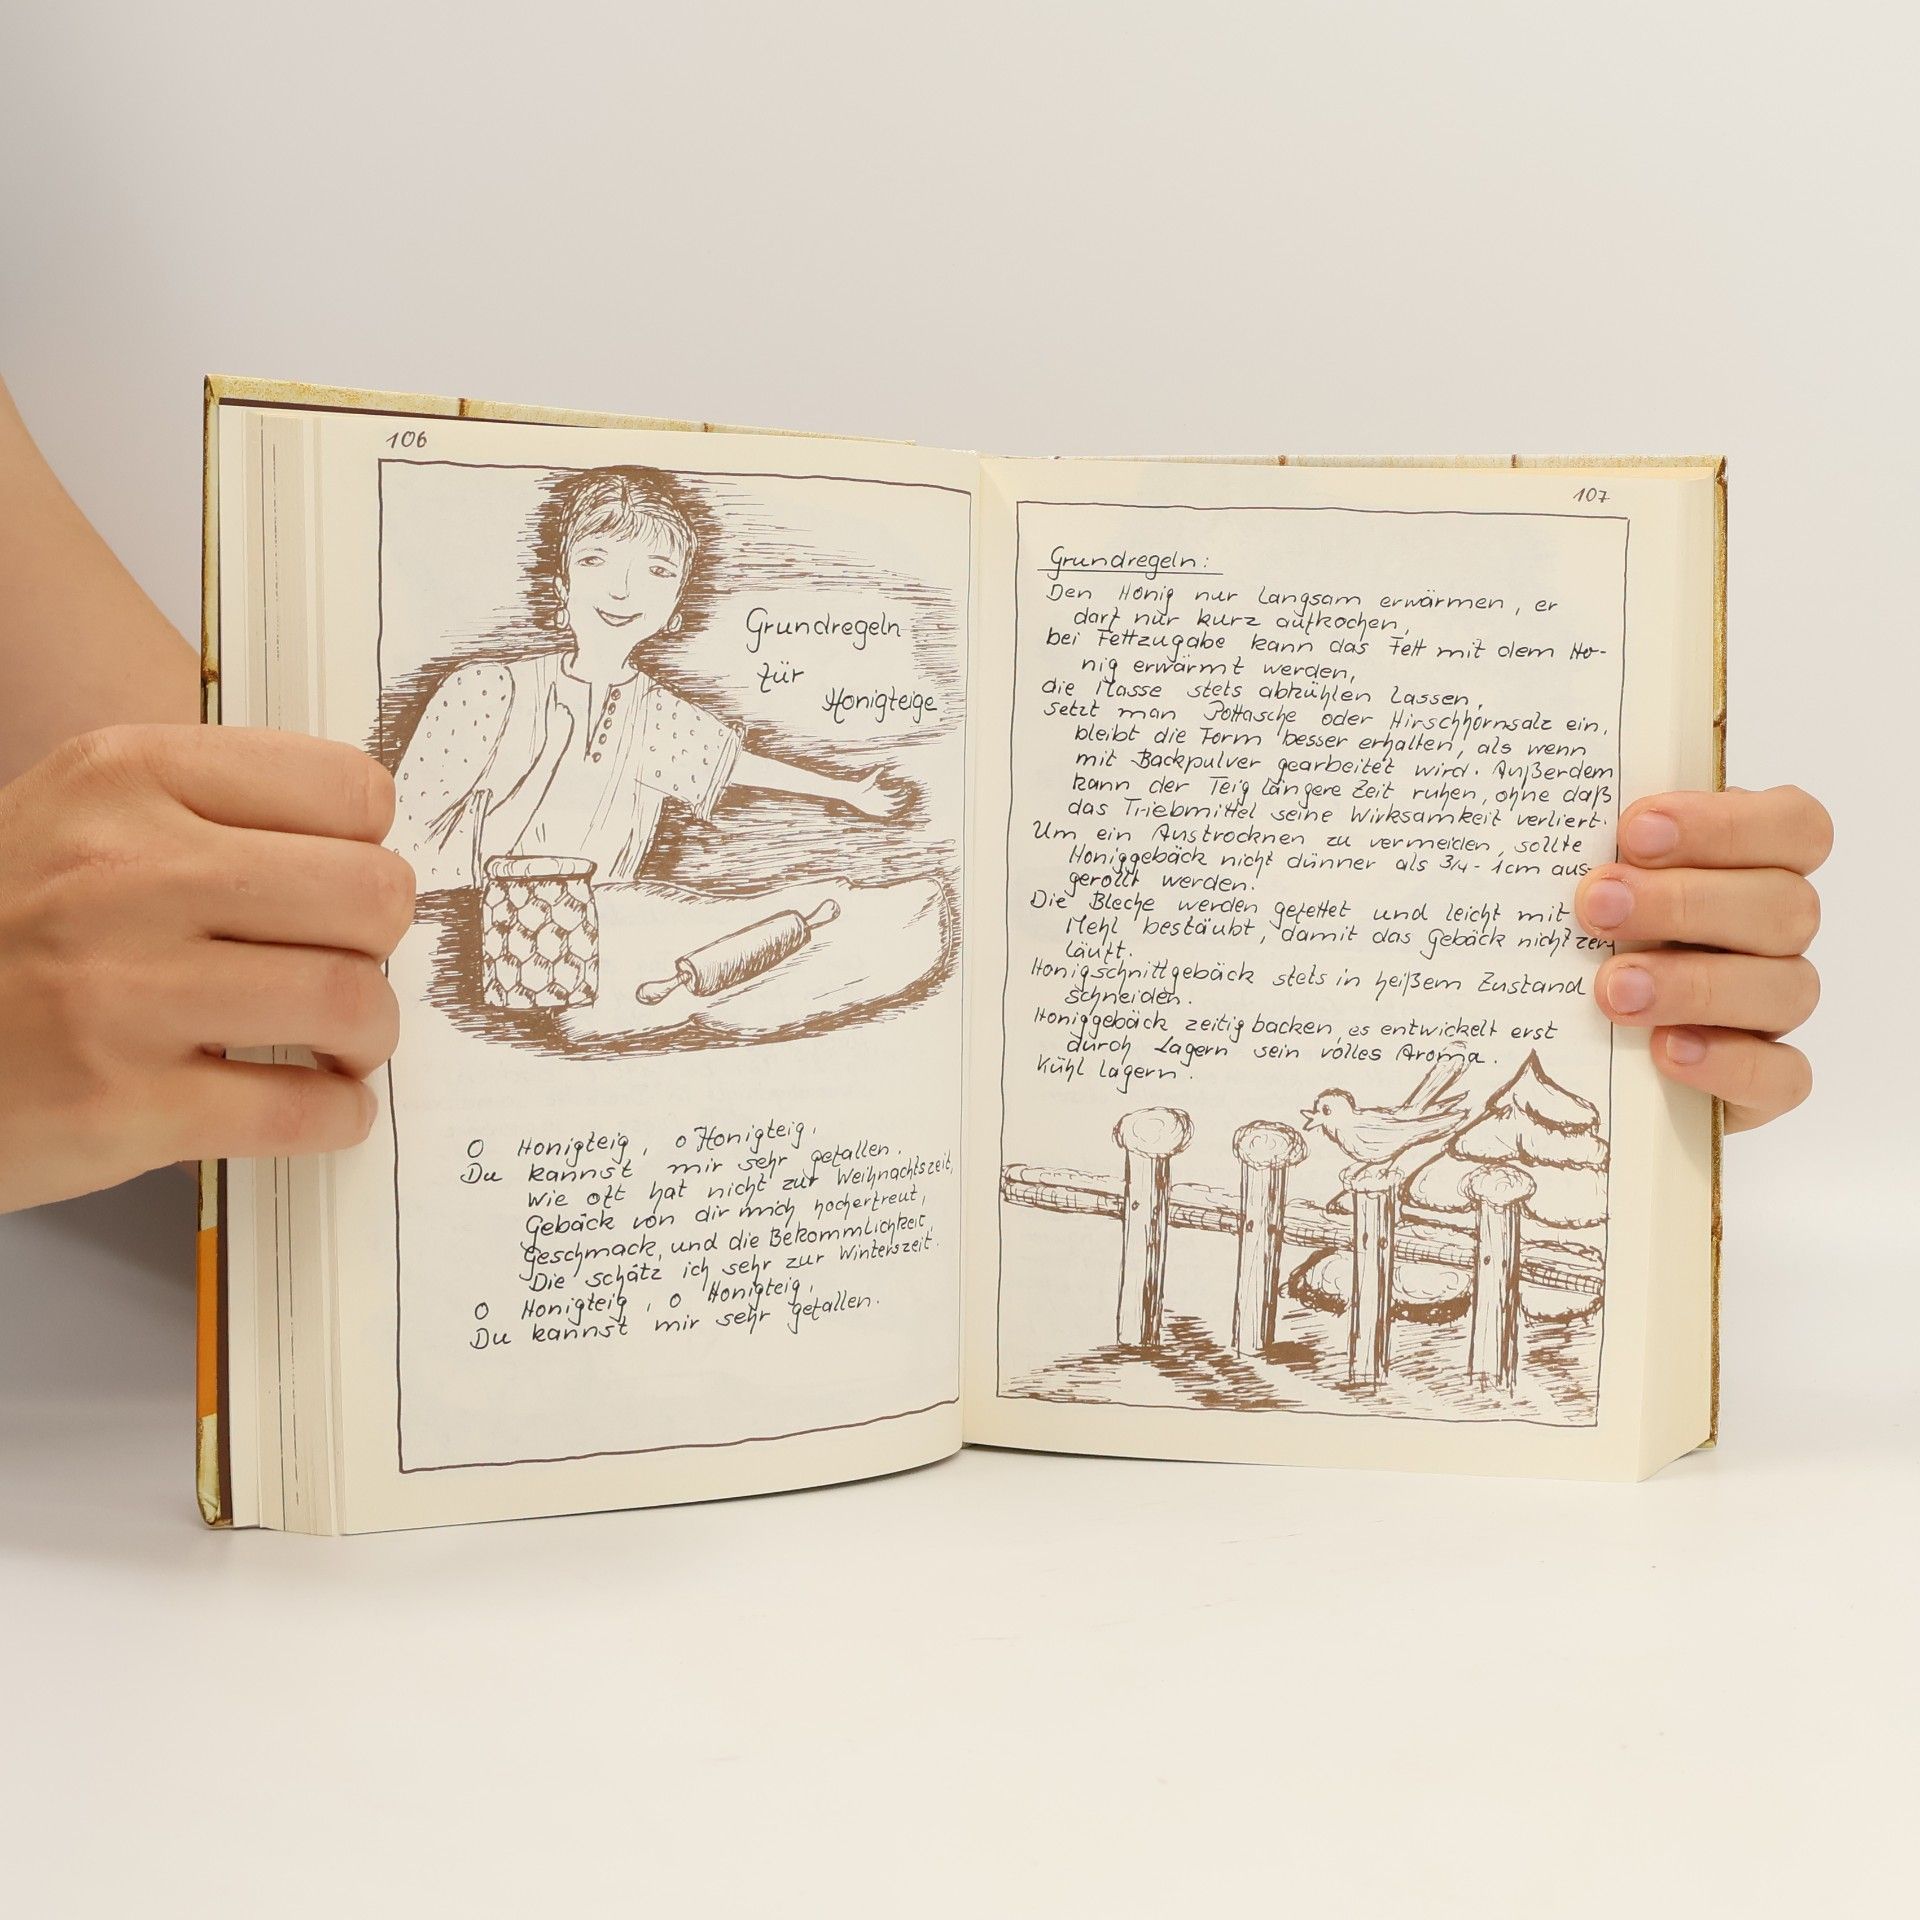 106
Grundregeln
für
Honigteige
O Honigteig, o Honigteig,
Du kannst mir sehr gefallen.
Wie oft hat nicht zur Weihnachtszeit,
Gebäck von dir mich hocherfreut,
Geschmack, und die Bekömmlichkeit,
Die schätz ich sehr zur Winterszeit.
O Honigteig, o Honigteig,
Du kannst mir sehr gefallen.
107
Grundregeln:
Den Honig nur langsam erwärmen, er
darf nur kurz aufkochen,
bei Fettzugabe kann das Fett mit dem Ho-
nig erwärmt werden,
die Masse stets abkühlen lassen,
setzt man Pottasche oder Hirschhornsalz ein,
bleibt die Form besser erhalten, als wenn
mit Backpulver gearbeitet wird. Außerdem
kann der Teig längere Zeit ruhen, ohne daß
das Triebmittel seine Wirksamkeit verliert.
Um ein Austrocknen zu vermeiden, sollte
Honiggebäck nicht dünner als 3/4 - 1cm aus-
gerollt werden.
Die Bleche werden gefettet und leicht mit
Mehl bestäubt, damit das Gebäck nicht zer-
läuft.
Honigschnittgebäck stets in heißem Zustand
schneiden.
Honiggebäck zeitig backen, es entwickelt erst
durch Lagern sein volles Aroma.
Kühl lagern.